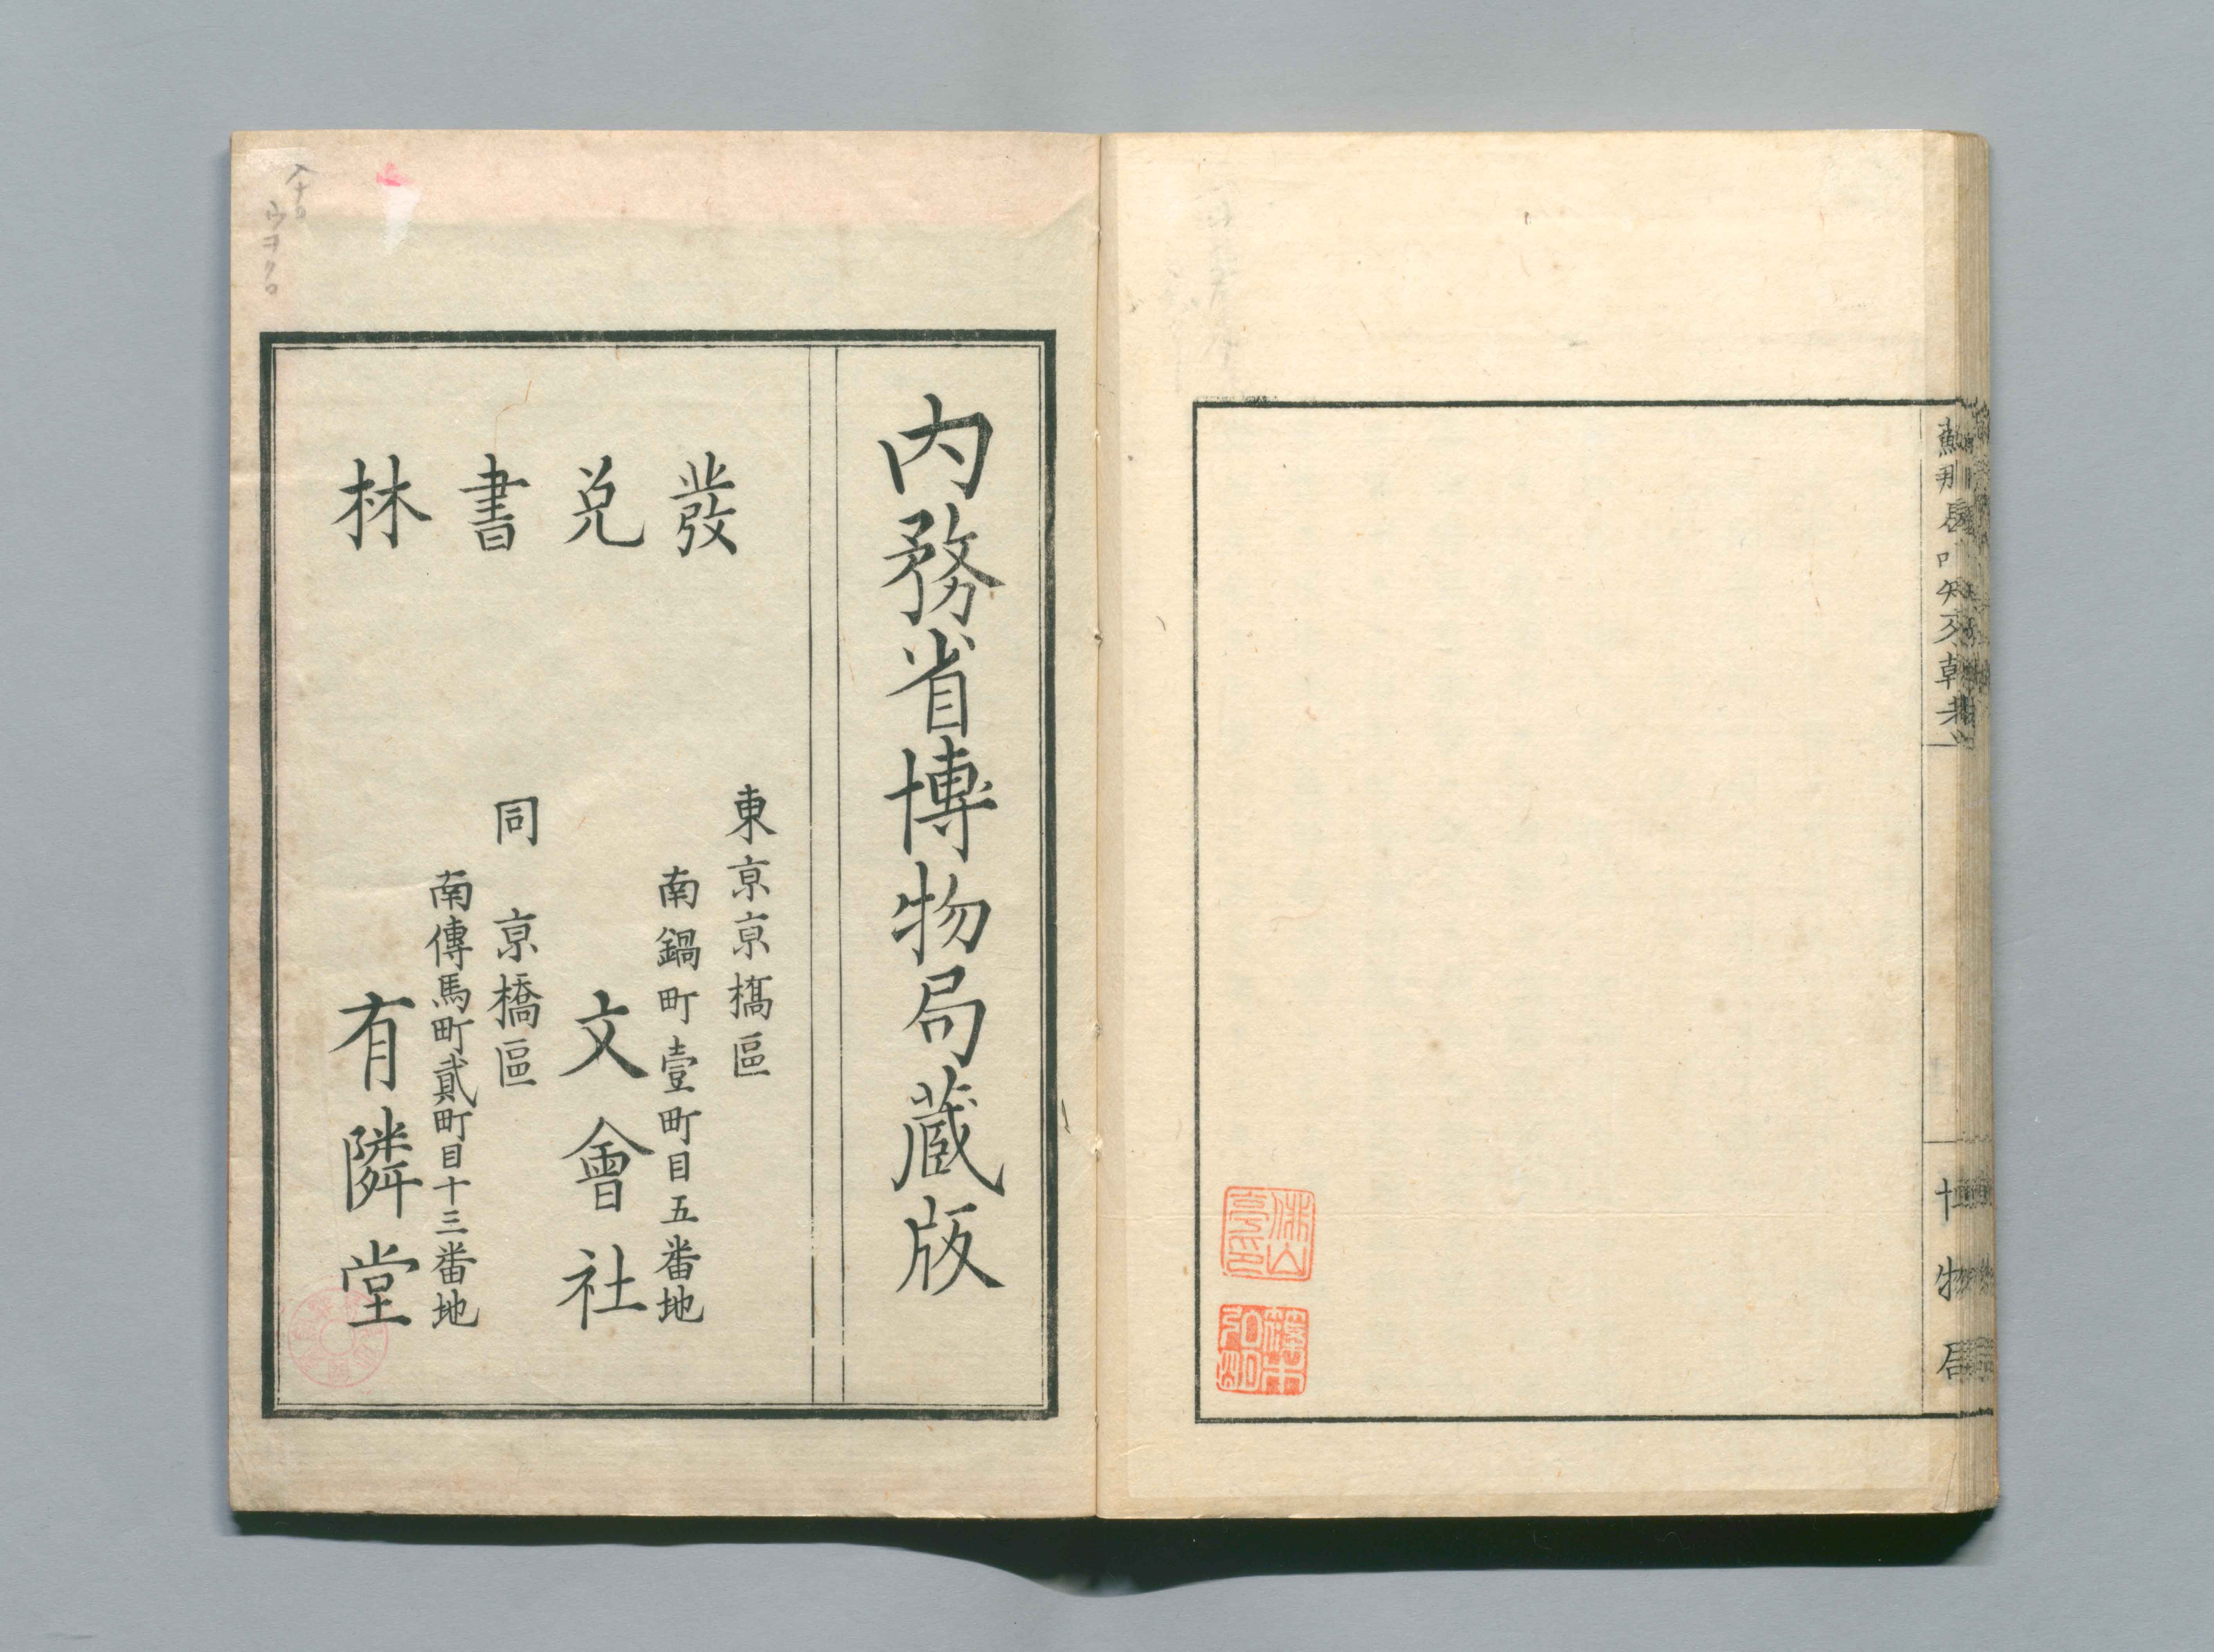 内務省博物局蔵版
發兌書林
東京京橋區
南鍋町壹町目五番地
文會社
同 京橋區
南傳馬町貳町目十三番地
有隣堂
物